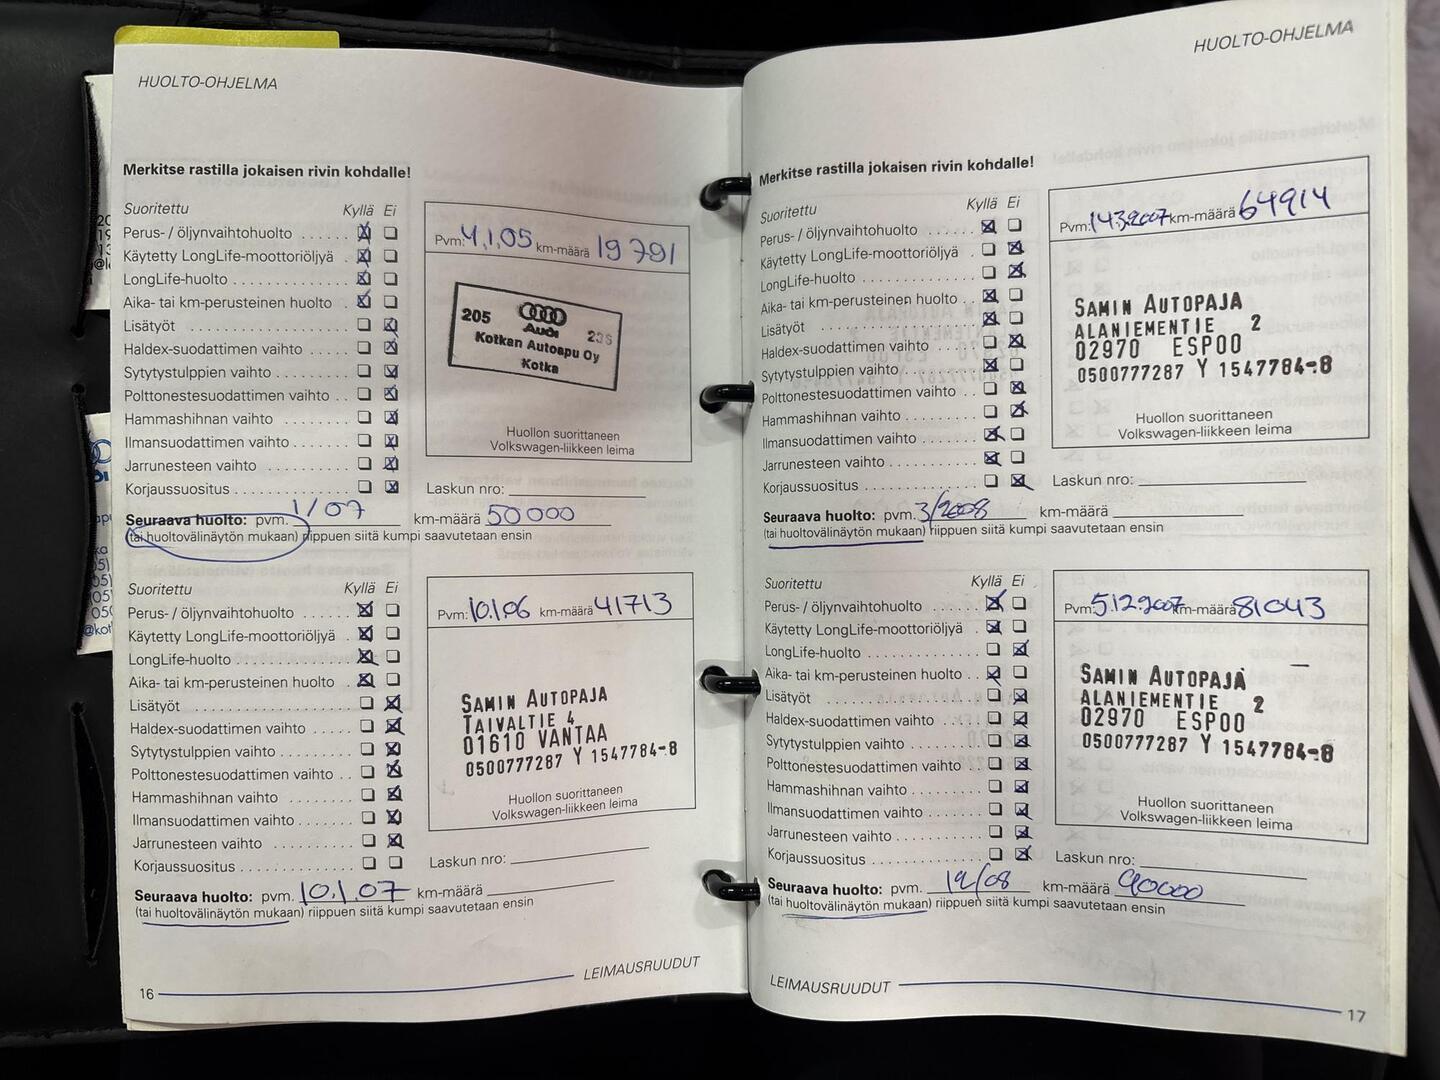 HUOLTO-OHJELMA
Merkitse rastilla jokaisen rivin kohdalle!
Suoritettu Kyllä Ei
Perus- / öljynvaihtohuolto
Käytetty LongLife-moottoriöljyä
LongLife-huolto
Aika- tai km-perusteinen huolto
Lisätyöt
Haldex-suodattimen vaihto
Sytytystulppien vaihto
Polttonestesuodattimen vaihto
Hammashihnan vaihto
Ilmansuodattimen vaihto
Jarrunesteen vaihto
Korjaussuositus
Pvm: 4.1.05 km-määrä 19 791
205
Audi
Kotkan Autoapu Oy
Kotka
Huollon suorittaneen
Volkswagen-liikkeen leima
Laskun nro:
Seuraava huolto: pvm. 1/07 km-määrä 50000
(tai huoltovälinäytön mukaan) riippuen siitä kumpi saavutetaan ensin
Suoritettu Kyllä Ei
Perus- / öljynvaihtohuolto
Käytetty LongLife-moottoriöljyä
LongLife-huolto
Aika- tai km-perusteinen huolto
Lisätyöt
Haldex-suodattimen vaihto
Sytytystulppien vaihto
Polttonestesuodattimen vaihto
Hammashihnan vaihto
Ilmansuodattimen vaihto
Jarrunesteen vaihto
Korjaussuositus
Pvm: 10.1.06 km-määrä 41713
SAMIN AUTOPAJA
TAIVALTIE 4
01610 VANTAA
0500777287 Y 1547784-8
Huollon suorittaneen
Volkswagen-liikkeen leima
Laskun nro:
Seuraava huolto: pvm. 10.1.07 km-määrä
(tai huoltovälinäytön mukaan) riippuen siitä kumpi saavutetaan ensin
LEIMAUSRUUDUT
16
HUOLTO-OHJELMA
Merkitse rastilla jokaisen rivin kohdalle!
Suoritettu Kyllä Ei
Perus- / öljynvaihtohuolto
Käytetty LongLife-moottoriöljyä
LongLife-huolto
Aika- tai km-perusteinen huolto
Lisätyöt
Haldex-suodattimen vaihto
Sytytystulppien vaihto
Polttonestesuodattimen vaihto
Hammashihnan vaihto
Ilmansuodattimen vaihto
Jarrunesteen vaihto
Korjaussuositus
Pvm: 14.3.2007 km-määrä 64914
SAMIN AUTOPAJA
ALANIEMENTIE 2
02970 ESPOO
0500777287 Y 1547784-8
Huollon suorittaneen
Volkswagen-liikkeen leima
Laskun nro:
Seuraava huolto: pvm. 3/2008 km-määrä
(tai huoltovälinäytön mukaan) riippuen siitä kumpi saavutetaan ensin
Suoritettu Kyllä Ei
Perus- / öljynvaihtohuolto
Käytetty LongLife-moottoriöljyä
LongLife-huolto
Aika- tai km-perusteinen huolto
Lisätyöt
Haldex-suodattimen vaihto
Sytytystulppien vaihto
Polttonestesuodattimen vaihto
Hammashihnan vaihto
Ilmansuodattimen vaihto
Jarrunesteen vaihto
Korjaussuositus
Pvm: 5.12.2007 km-määrä 81043
SAMIN AUTOPAJA
ALANIEMENTIE 2
02970 ESPOO
0500777287 Y 1547784-8
Huollon suorittaneen
Volkswagen-liikkeen leima
Laskun nro:
Seuraava huolto: pvm. 12/08 km-määrä 90000
(tai huoltovälinäytön mukaan) riippuen siitä kumpi saavutetaan ensin
LEIMAUSRUUDUT
17